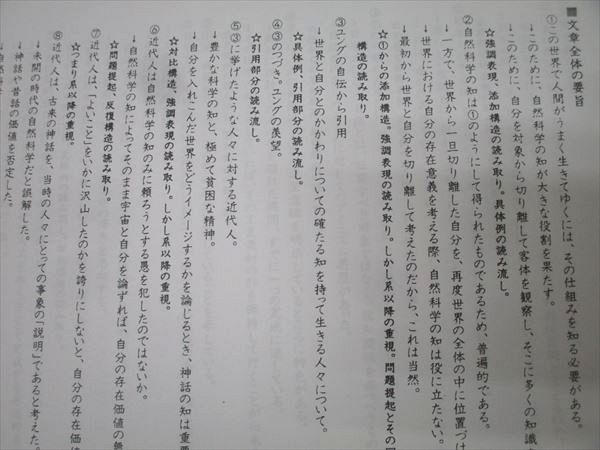 ■文章全体の要旨
①この世で人間がうまく生きてゆくには、その仕組みを知る必要がある。
↓このために、自然科学の知が大きな役割を果たす。
↓このために、自分を対象から切り離して客体を観察し、そこに多くの知識
☆強調表現、添加構造の読み取り。具体例の読み流し。
②自然科学の知は①のようにして得られたものであるため、普遍的である。
↓一方で、世界から一旦切り離した自分を、再度世界の全体の中に位置づけ
↓世界における自分の存在意義を考える際、自然科学の知は役に立たない。
↓最初から世界と自分を切り離して考えたのだから、これは当然。
☆①からの添加構造。強調表現の読み取り。しかし系以降の重視。問題提起とその
構造の読み取り。
③ユングの自伝から引用
↓世界と自分とのかかわりについての確たる知を持って生きる人々について。
☆具体例、引用部分の読み流し。
④③のつづき。ユングの羨望。
☆引用部分の読み流し。
⑤③に挙げたような人々に対する近代人。
↓豊かな科学の知と、極めて貧困な精神。
↓自分を入れこんだ世界をどうイメージするかを論じるとき、神話の知は重要
☆対比構造、強調表現の読み取り。しかし系以降の重視。
⑥近代人は自然科学の知のみに頼ろうとする愚を犯したのではないか。
↓自然科学の知によってそのまま宇宙と自分を論ずれば、自分の存在価値の
☆問題提起、反復構造の読み取り。
⑦近代人は、「よいこと」をいかに沢山したのかを誇りにしないと、自分の存在価値
☆つまり系以降の重視。
⑧近代人は、古来の神話を、当時の人々にとっての事象の「説明」であると考えた。
↓未開の時代の自然科学だと誤解した。
↓神話や昔話の価値を否定した。